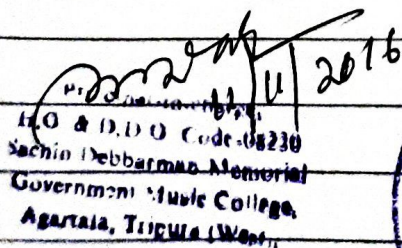 11/11/2016
H.O & D.D.O Code-08230
Sachin Debbarman Memorial
Government Music College,
Agartala, Tripura (West),